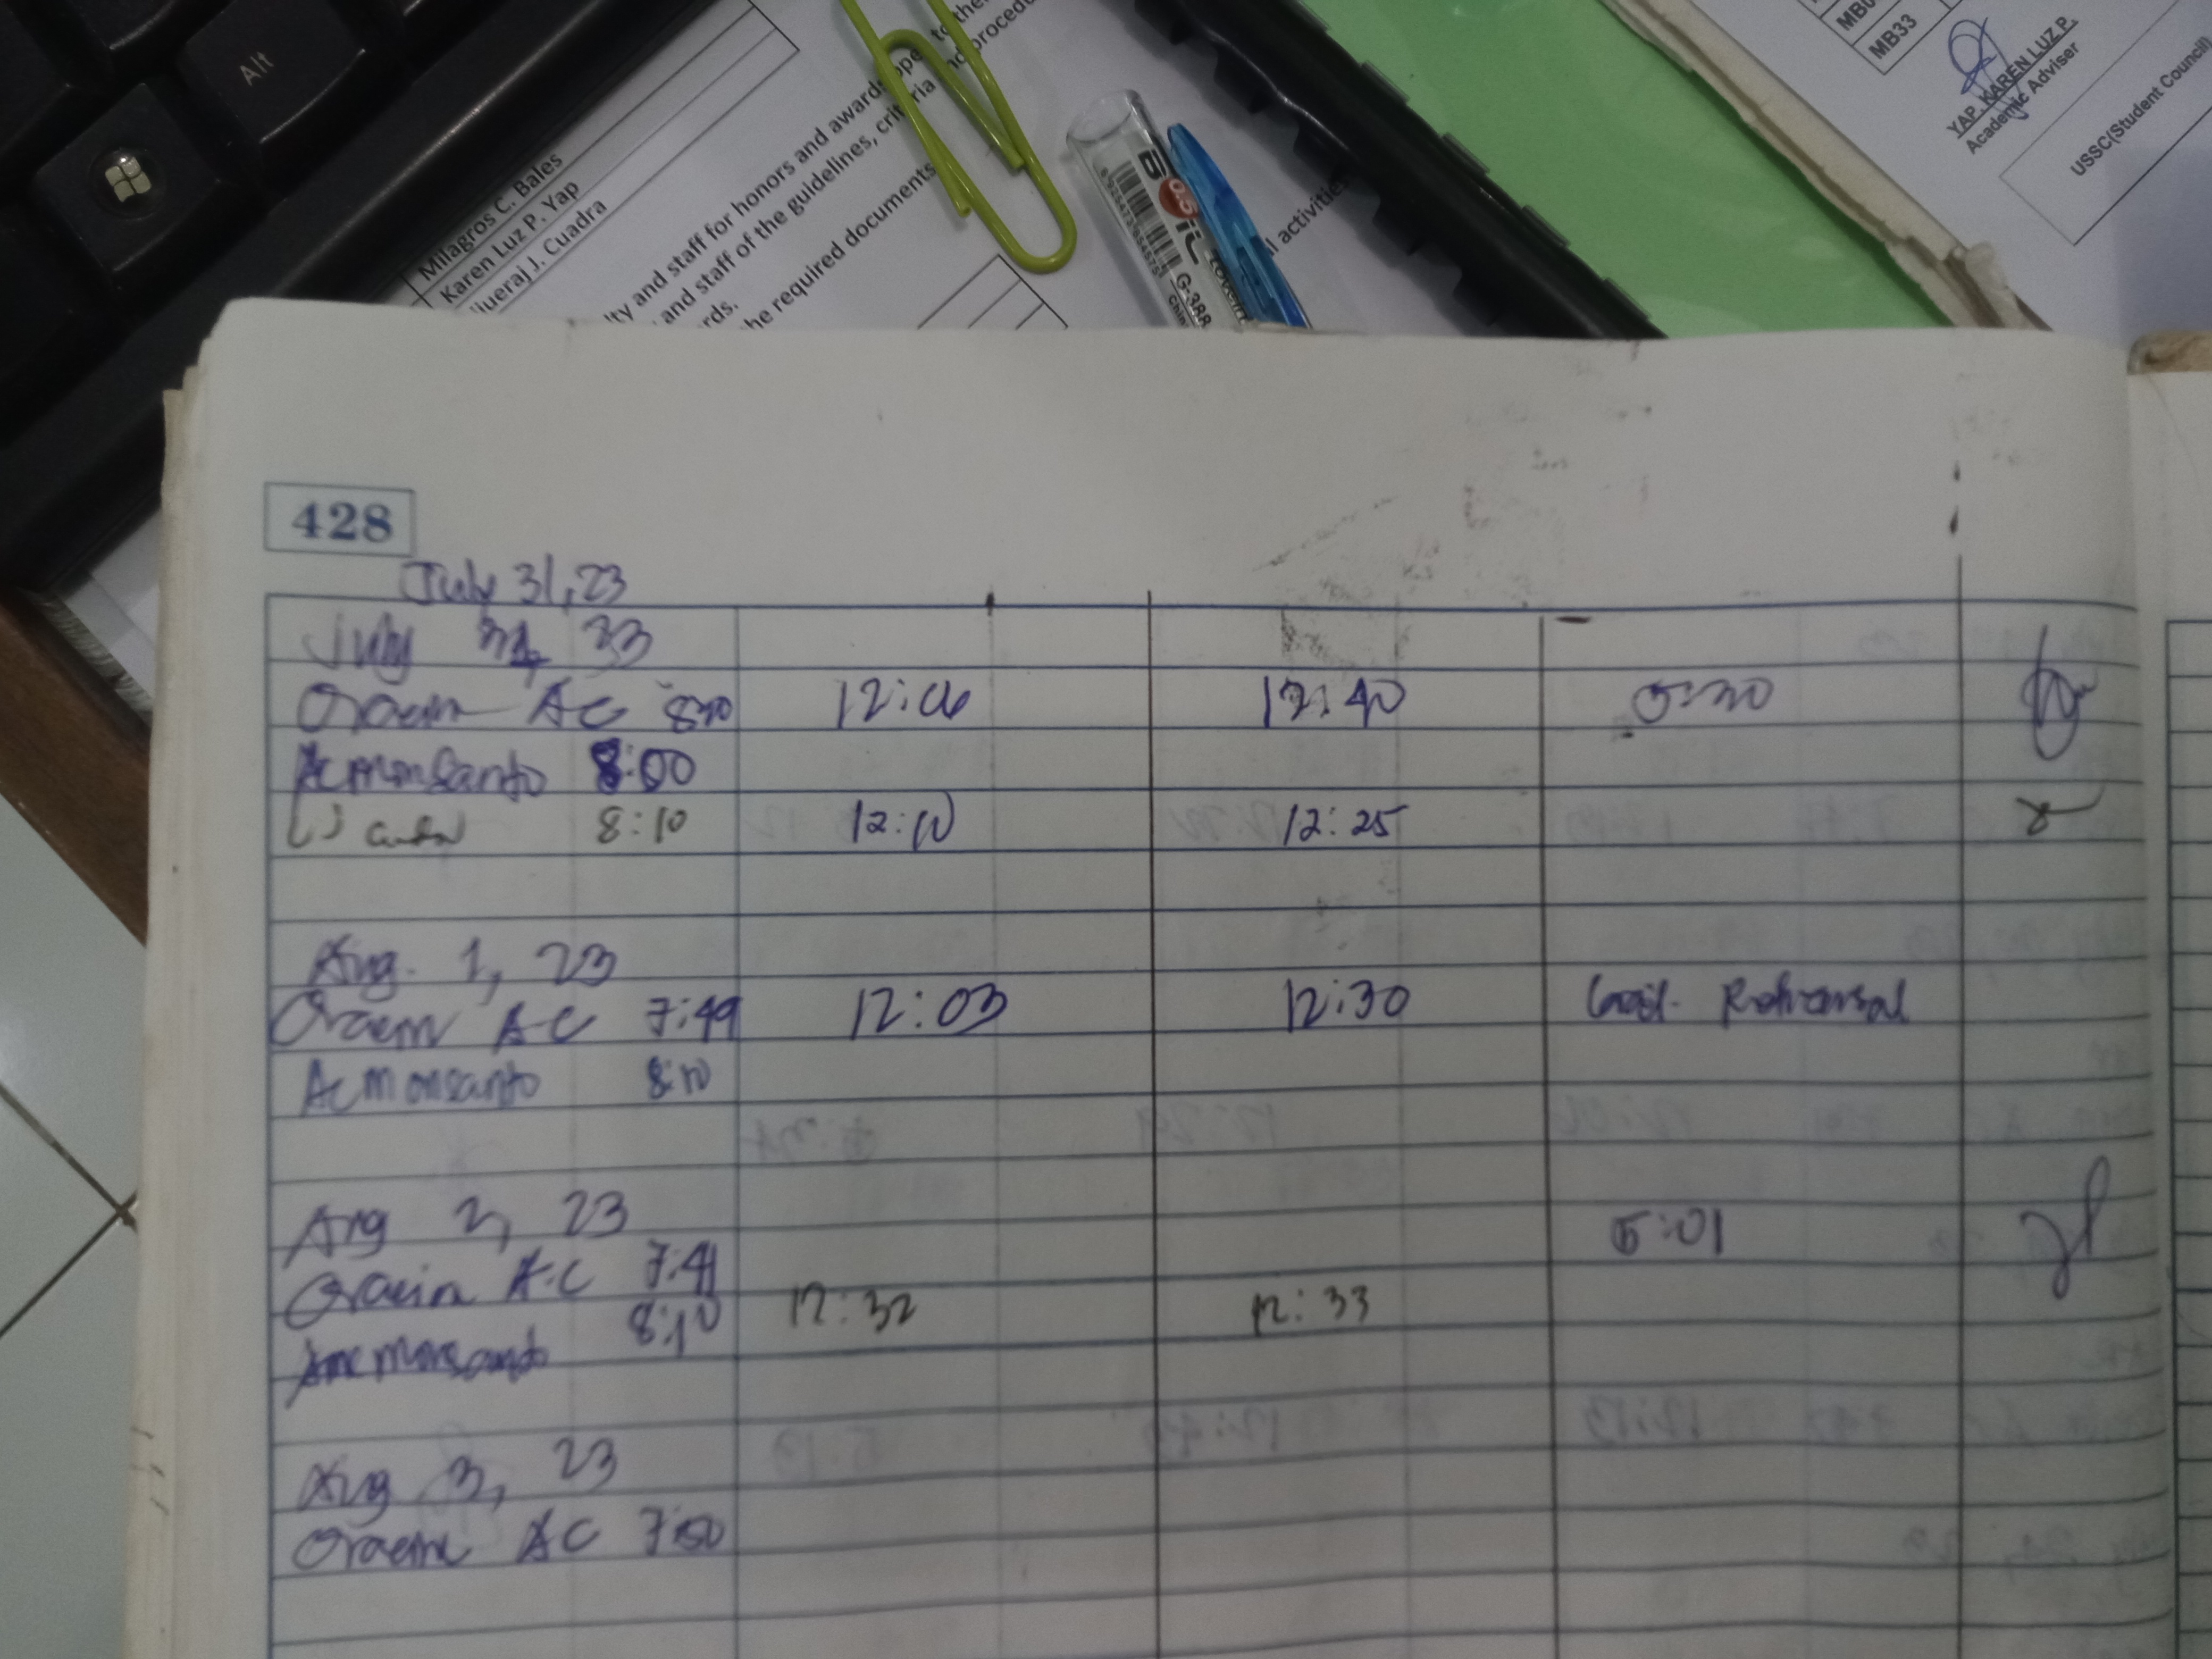 Alt
Milagros C. Bales
Karen Luz P. Yap
J. Cuadra
lty and staff for honors and awards open to the
and staff of the guidelines, criteria and procedu
rds.
he required documents
ll activities
0.5
G-388
MB33
YAP, KAREN LUZ P.
Academic Adviser
USSC(Student Council)
428
July 31, 23
July 31, 23
Oraem AC 12:06 12:40 5:30
Acmonsanto 8:00
8:10 12:10 12:25
Aug. 1, 23
Oraem AC 7:49 12:03 12:30 Rehearsal
Acmonsanto 8:10
Aug 2, 23 5:01
Oraem A.C 7:41
8:10 12:32 12:33
monsanto
Aug 3, 23
Oraem AC 7:50